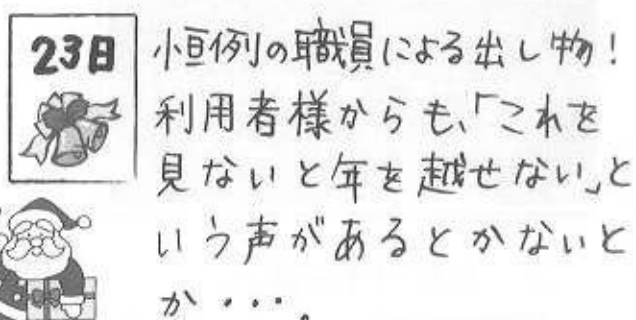 23日
恒例の職員による出し物！
利用者様からも、「これを
見ないと年を越せない」と
いう声があるとかないと
か・・・。